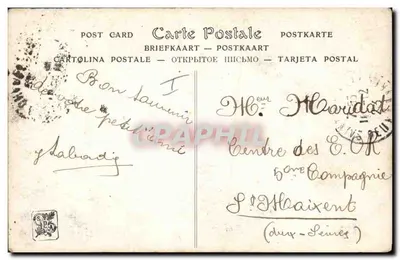 POST CARD Carte Postale POSTKARTE
BRIEFKAART — POSTKAART
CARTOLINA POSTALE — ОТКРЫТОЕ ПИСЬМО — TARJETA POSTAL
Bon souvenir
de votre petit ami
I
Mme Maridat
Centre des E. M
5me Compagnie
St Maixent
(deux-Sèvres)